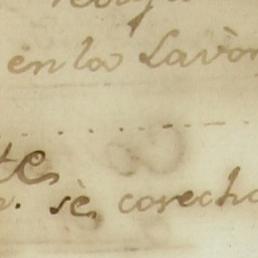 en la Lavor
te
. sè corecha